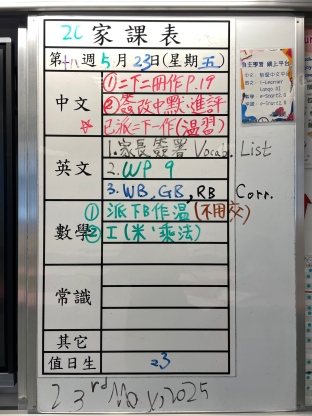 2C 家課表
第十八週5月23日(星期五)
中文
①二下二冊作P.19
②簽改中默、進評
☆已派二下一作(溫習)
英文
1.家長簽署 Vocab. List
2.WP 9
3.WB, GB, RB Corr.
數學
①派下B作溫(不用交)
②工(米、乘法)
常識
其它
值日生 23
23rd May, 2025
自主學習 網上平台